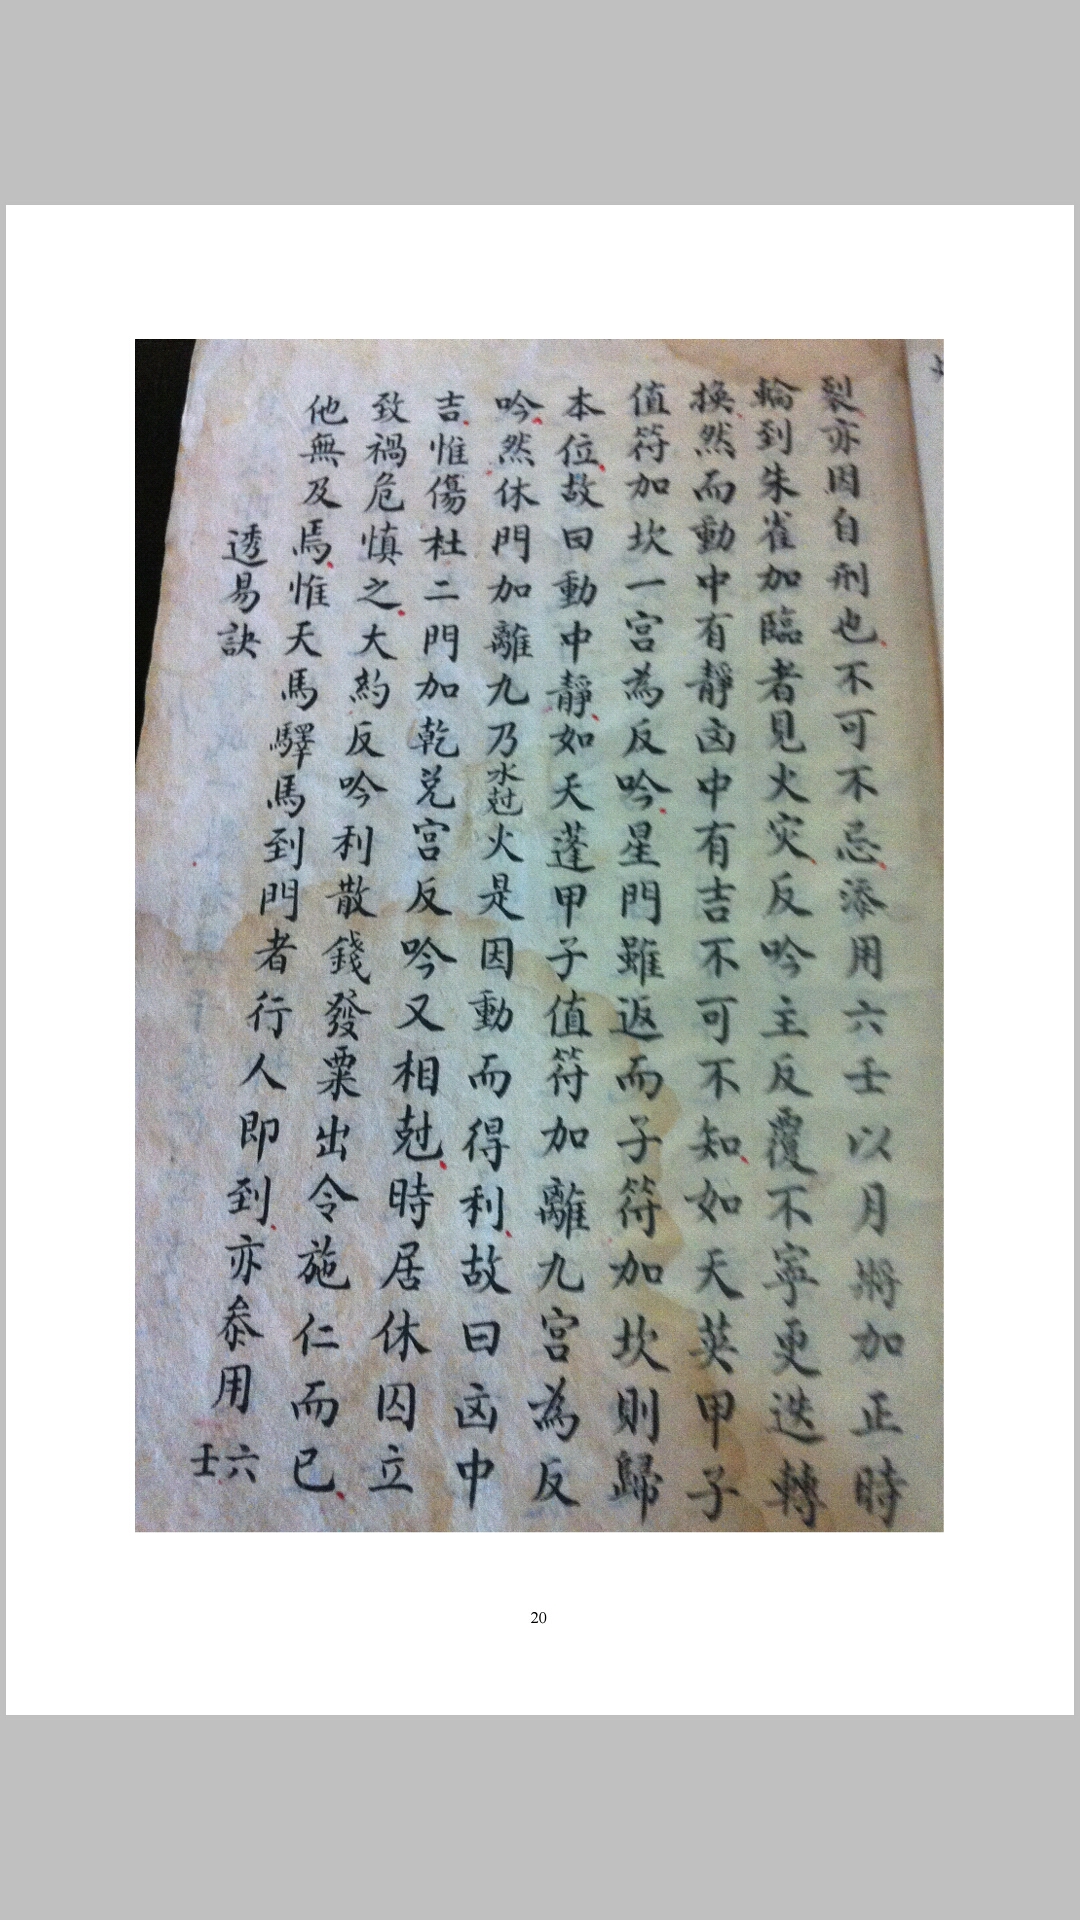 裂亦因自刑也不可不忌添用六壬以月將加正時
輪到朱雀加臨者見火灾反吟主反覆不寧更迭轉
換然而動中有靜凶中有吉不可不知如天英甲子
值符加坎一宮為反吟星門雖返而子符加坎則歸
本位故曰動中靜如天蓬甲子值符加離九宮為反
吟然休門加離九乃水尅火是因動而得利故曰凶中
吉惟傷杜二門加乾兌宮反吟又相尅時居休囚立
致禍危慎之大約反吟利散錢發粟出令施仁而已
他無及焉惟天馬驛馬到門者行人即到亦叅用六壬
透易訣
20